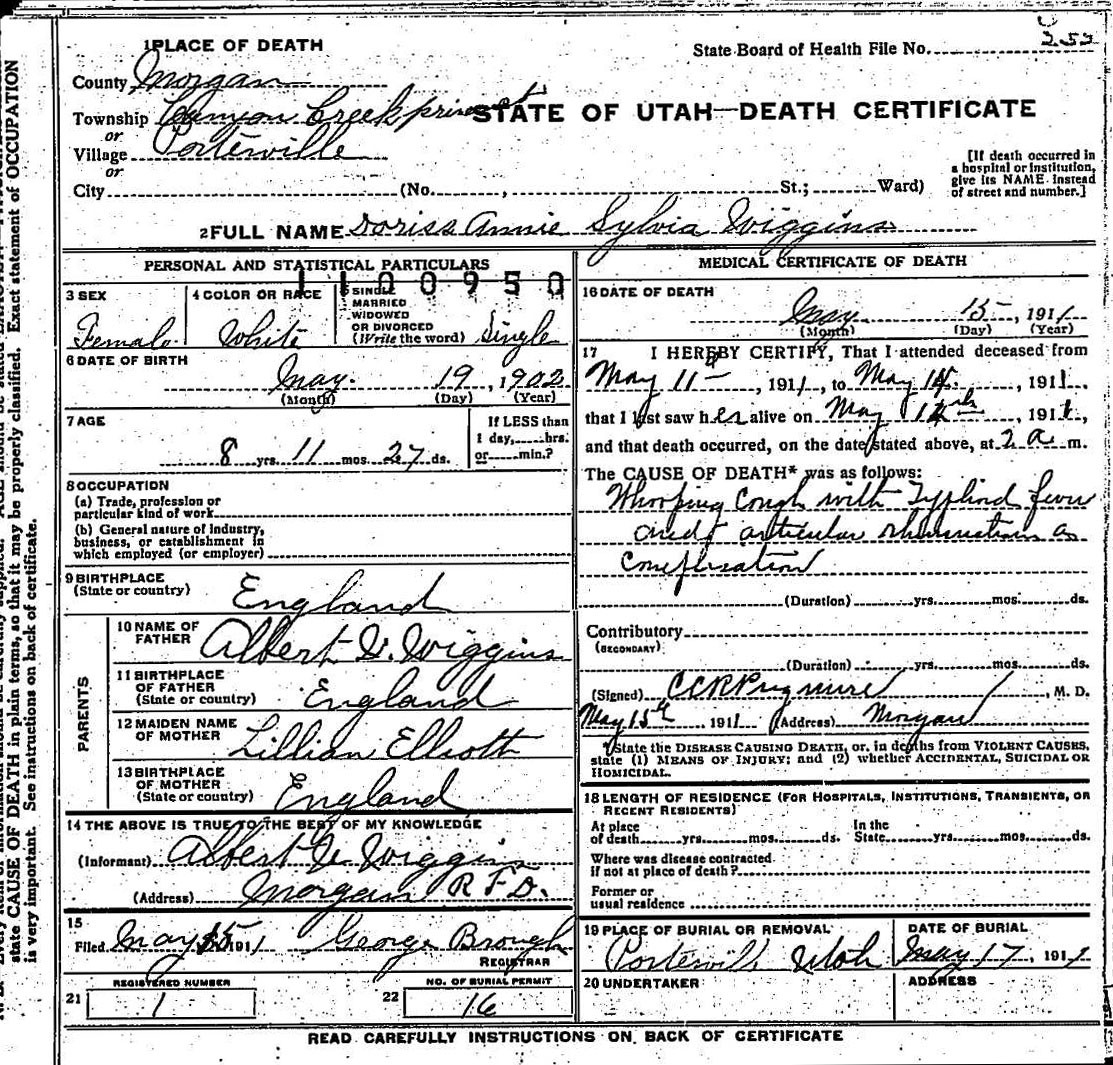 1 PLACE OF DEATH
State Board of Health File No. 252
County Morgan
Township Canyon Creek
STATE OF UTAH—DEATH CERTIFICATE
or
Village Porterville
or
City (No. , St.; Ward)
[If death occurred in
a hospital or institution,
give its NAME instead
of street and number.]
2 FULL NAME Doriss Annie Sylvia Wiggins
PERSONAL AND STATISTICAL PARTICULARS
1100950
3 SEX
Female
4 COLOR OR RACE
White
5 SINGLE
MARRIED
WIDOWED
OR DIVORCED
(Write the word) Single
6 DATE OF BIRTH
May 19, 1902
(Month) (Day) (Year)
7 AGE
8 yrs. 11 mos. 27 ds.
If LESS than
1 day, hrs.
or min.?
8 OCCUPATION
(a) Trade, profession or
particular kind of work
(b) General nature of industry,
business, or establishment in
which employed (or employer)
9 BIRTHPLACE
(State or country) England
PARENTS
10 NAME OF
FATHER Albert V. Wiggins
11 BIRTHPLACE
OF FATHER
(State or country) England
12 MAIDEN NAME
OF MOTHER Lillian Elliott
13 BIRTHPLACE
OF MOTHER
(State or country) England
14 THE ABOVE IS TRUE TO THE BEST OF MY KNOWLEDGE
(Informant) Albert V. Wiggins
(Address) Morgan R.F.D.
15
Filed May 15 1911 George Brough
REGISTRAR
21 REGISTERED NUMBER
1
22 NO. OF BURIAL PERMIT
16
MEDICAL CERTIFICATE OF DEATH
16 DATE OF DEATH
May 15, 1911
(Month) (Day) (Year)
17 I HEREBY CERTIFY, That I attended deceased from
May 11th, 1911, to May 14, 1911,
that I last saw her alive on May 14th, 1911,
and that death occurred, on the date stated above, at 2 a m.
The CAUSE OF DEATH* was as follows:
Whooping Cough with Typhoid fever
and articular rheumatism as
Complication
(Duration) yrs. mos. ds.
Contributory
(SECONDARY)
(Duration) yrs. mos. ds.
(Signed) , M. D.
May 15th 1911 (Address) Morgan
*State the DISEASE CAUSING DEATH, or, in deaths from VIOLENT CAUSES,
state (1) MEANS OF INJURY; and (2) whether ACCIDENTAL, SUICIDAL OR
HOMICIDAL.
18 LENGTH OF RESIDENCE (FOR HOSPITALS, INSTITUTIONS, TRANSIENTS, OR
RECENT RESIDENTS)
At place
of death yrs. mos. ds.
In the
State yrs. mos. ds.
Where was disease contracted
if not at place of death?
Former or
usual residence
19 PLACE OF BURIAL OR REMOVAL
Porterville Utah
DATE OF BURIAL
May 17, 1911
20 UNDERTAKER
ADDRESS
READ CAREFULLY INSTRUCTIONS ON BACK OF CERTIFICATE
state CAUSE OF DEATH in plain terms, so that it may be properly classified. Exact statement of OCCUPATION
is very important. See instructions on back of certificate.